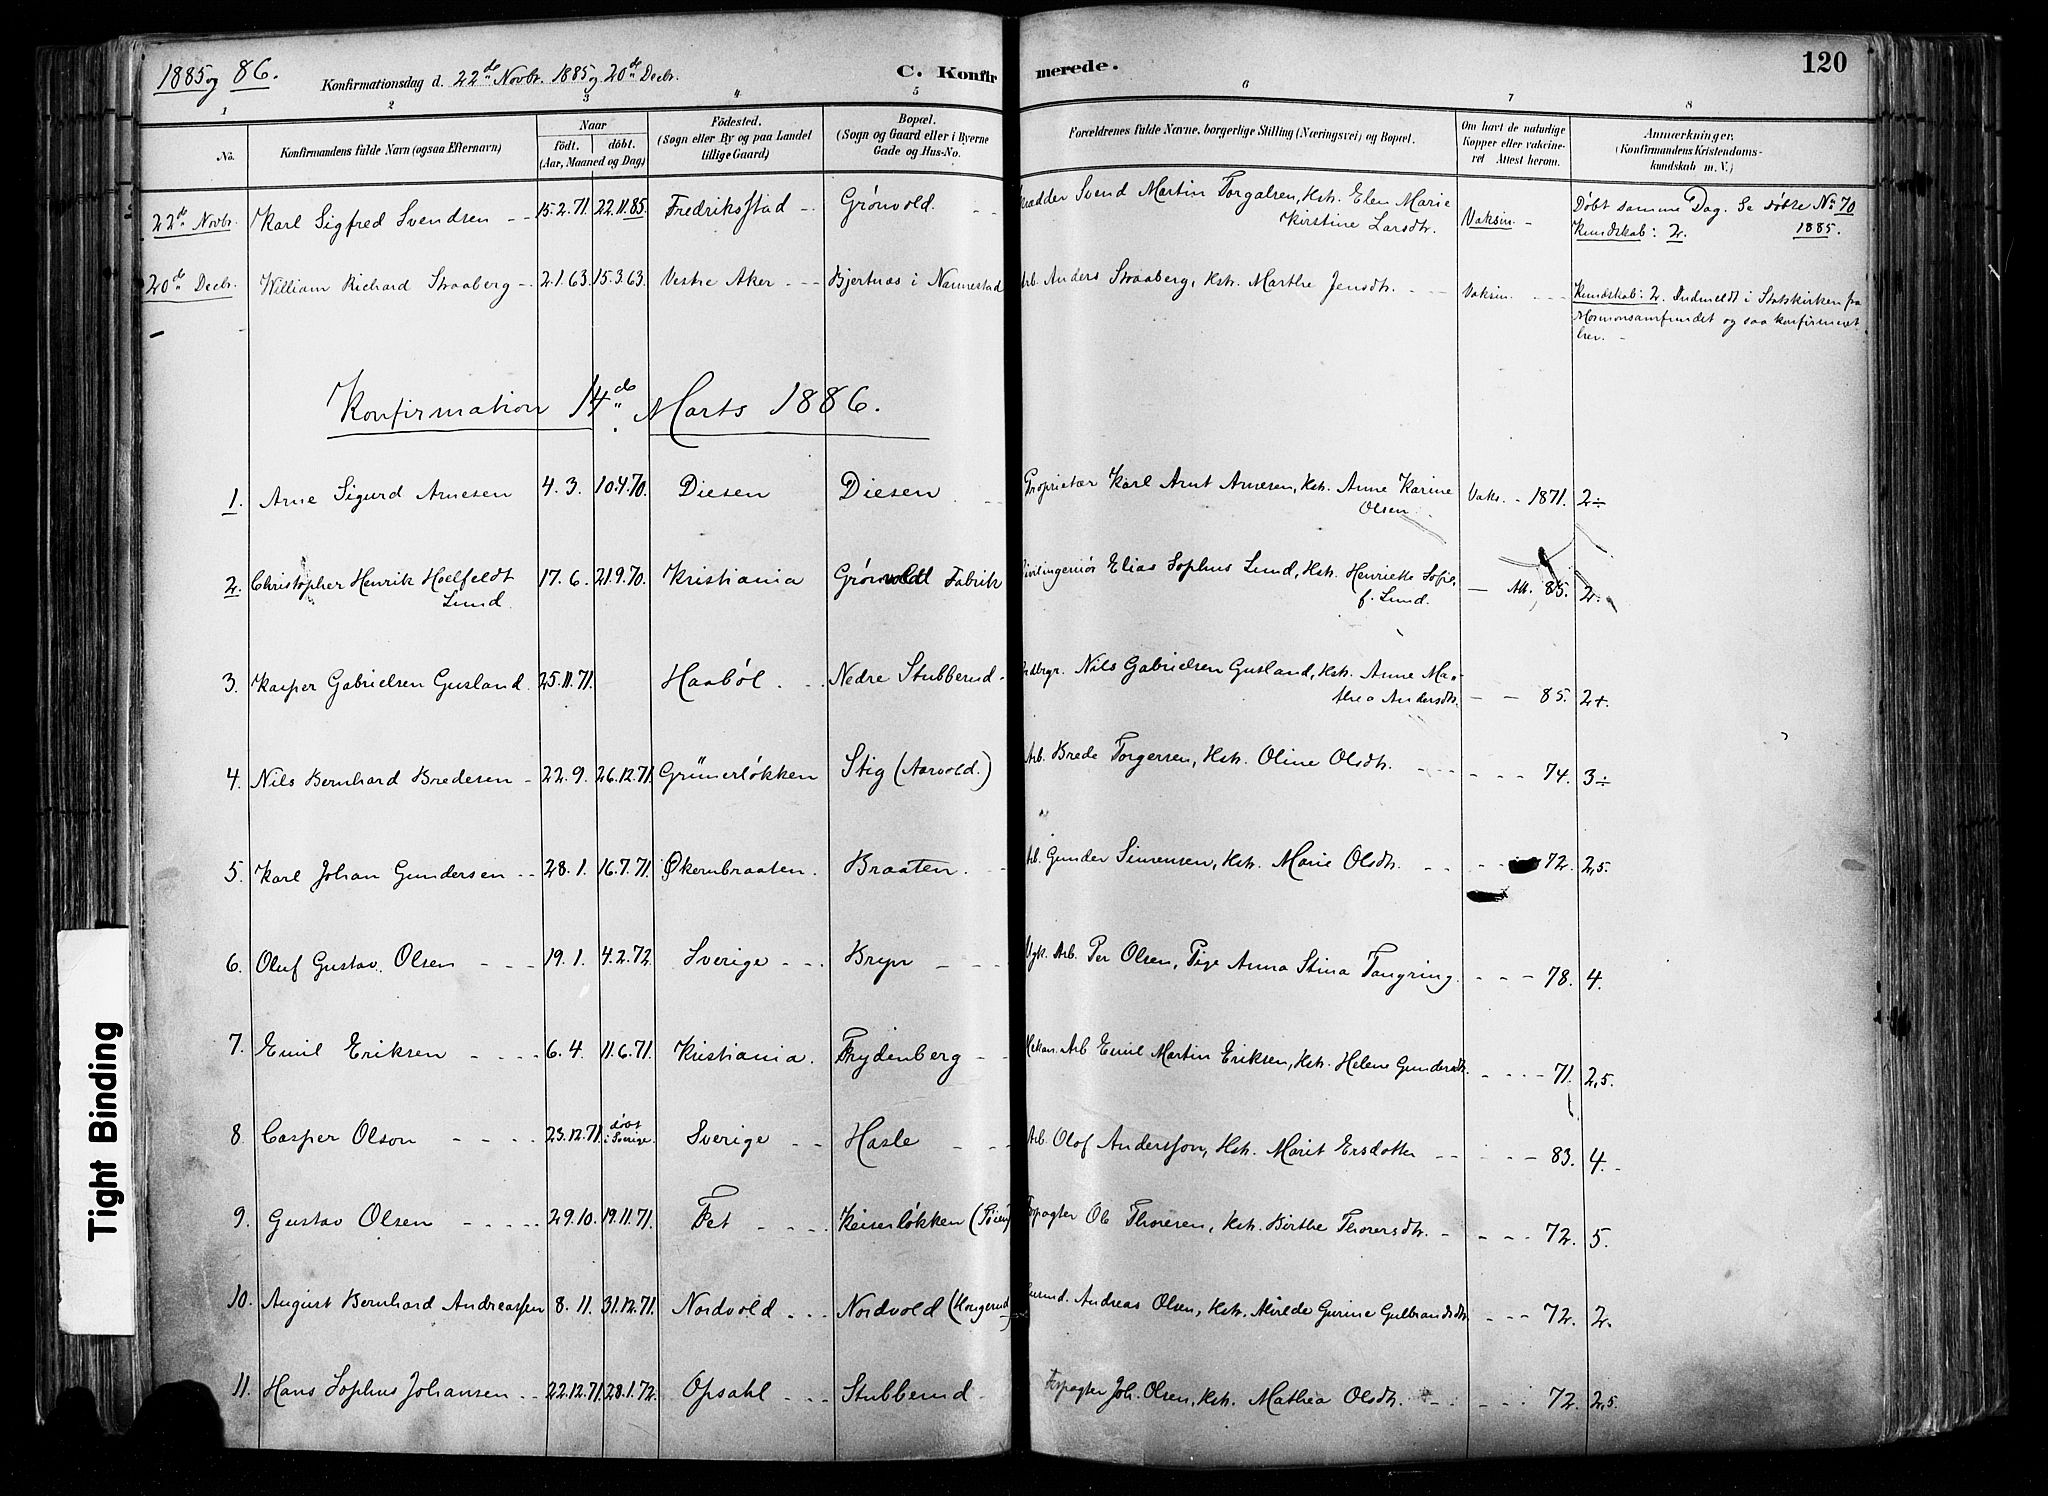 1885 og 86.
Konfirmationsdag d. 22de Novbr. 1885 og 20de Decbr.
C. Konfirmerede.
120
1 2 3 4 5 6 7 8
No.
Konfirmandens fulde Navn (ogsaa Efternavn)
Naar
født. døbt.
(Aar, Maaned og Dag)
Fødested.
(Sogn eller By og paa Landet
tillige Gaard)
Bopæl.
(Sogn og Gaard eller i Byerne
Gade og Hus-No.
Forældrenes fulde Navne, borgerlige Stilling (Næringsvei) og Bopæl.
Om havt de naturlige
Kopper eller vakcine-
ret Attest herom.
Anmærkninger.
(Konfirmandens Kristendoms-
kundskab m. V.)
22de Novbr. Karl Sigfred Svendsen 15.2.71 22.11.85. Fredriksstad Grönvold. Svend Martin Torgalsen, Hstr. Elen Marie
Kirstine Larsdtr. Vaksin. Döbt samme Dag. Se döbte No 70
1885.
Kundskab: 2.
20de Decbr. William Richard Straaberg 2.1.63 15.3.63. Vestre Aker Bjertnæs i Nannestad Arb. Anders Straaberg, Hstr. Marthe Jensdtr. Vaksin. Kundskab: 2. Indmeldt i Statskirken fra
Mormonsamfundet og saa konfirmeret
her.
Konfirmation 14de Marts 1886.
1. Arne Sigurd Arnesen 4.3. 10.4.70. Diesen Diesen Proprietær Karl Arnt Arnesen, Hstr. Anne Karine
Olsen. Vaks. 1871. 2÷
2. Christopher Henrik Hoelfeldt
Lund. 17.6. 21.9.70. Kristiania Grönvold Fabrik Civilingeniör Elias Sophus Lund, Hstr. Henriette Sofie,
f. Lund. Att. 85. 2.
3. Kasper Gabrielsen Gusland. 25.11.71. Haaböl Nedre Stubberud Nils Gabrielsen Gusland, Hstr. Anne Ma-
thea Andersdtr. 85. 2+.
4. Nils Bernhard Bredesen 22.9. 26.12.71. Grünerløkken Stig (Aarvold.) Arb. Brede Torgersen, Hstr. Oline Olsdtr. 74. 3÷
5. Karl Johan Gundersen 28.1. 16.7.71. Økernbraaten. Braaten. Arb. Gunder Simensen, Hstr. Marie Olsdtr. 72. 2,5.
6. Oluf Gustav Olsen 19.1. 4.2.72. Sverige Bryn Ugk. Arb. Per Olsen, Pige Anna Stina Tangring. 78. 4.
7. Emil Eriksen 6.4. 11.6.71. Kristiania. Frydenberg Mekan. Arb Emil Martin Eriksen, Hstr. Helene Gundersdtr. 71. 2,5.
8. Casper Olson 23.12.71. döbt
i Sverige. Sverige Hasle Arb. Olof Andersson, Hstr. Marit Ersdotter 83. 4.
9. Gustav Olsen 29.10. 19.11.71. Fet Keiserløkken (Töien) Forpagter Ole Thoresen, Hstr. Birthe Thorersdtr. 72. 5.
10. August Bernhard Andreassen 8.11. 31.12.71. Nordvold Nordvold (Kongerud) Andreas Olsen, Hstr. Gurine Gulbrandsdtr. 72. 2.
11. Hans Sophus Johansen 22.12.71. 28.1.72. Opsahl Stubberud Forpagter Joh. Olsen, Hstr. Mathea Olsdtr. 72. 2,5.
Tight Binding